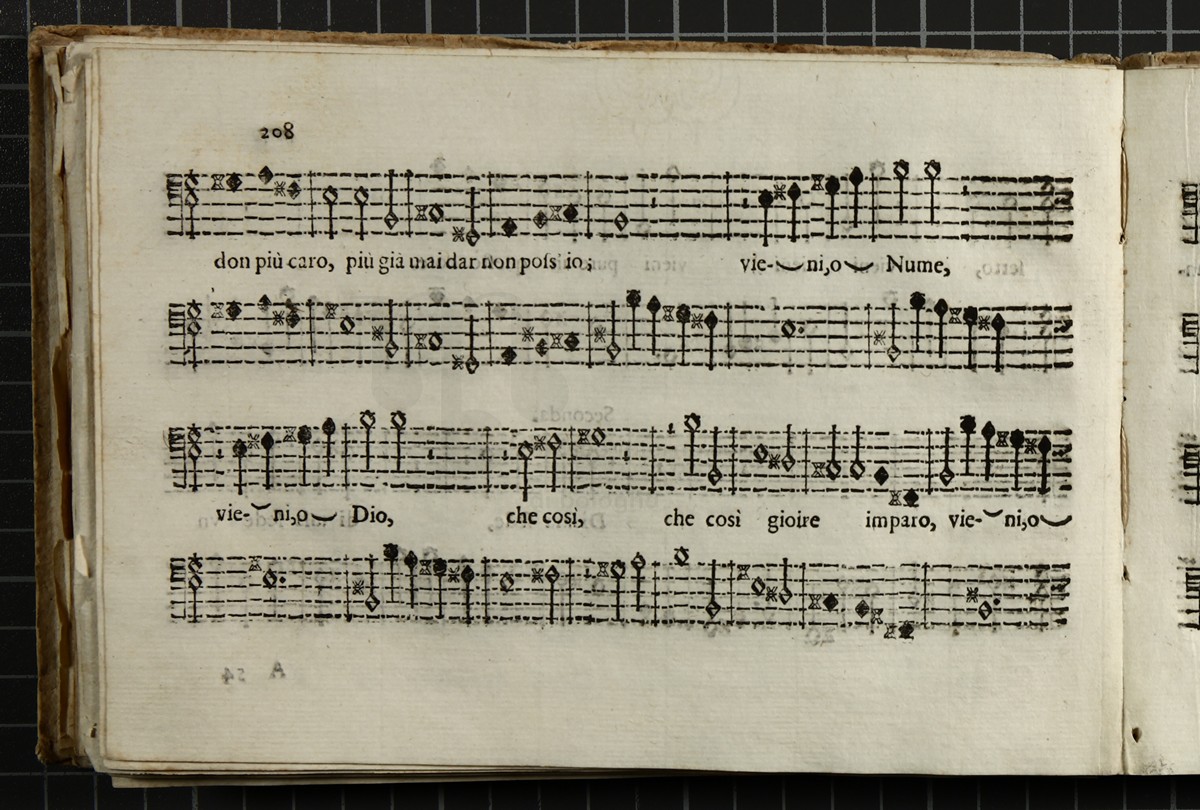 208
don più caro, più già mai dar non poſs io; vie- ni,o Nume,
vie- ni,o Dio, che così, che così gioire imparo, vie- ni,o